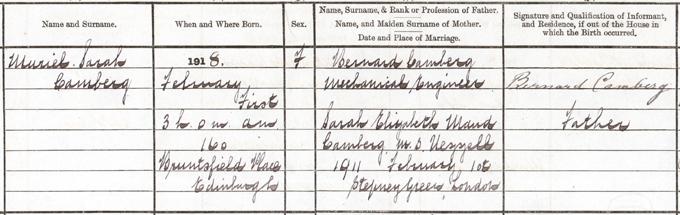 Name and Surname.
When and Where Born.
Sex.
Name, Surname, & Rank or Profession of Father.
Name, and Maiden Surname of Mother.
Date and Place of Marriage.
Signature and Qualification of Informant,
and Residence, if out of the House in
which the Birth occurred.
Muriel Sarah
Camberg
1918.
February
First
3 h. 0 m. am
160
Bruntsfield Place
Edinburgh
F
Bernard Camberg
Mechanical Engineer
Sarah Elizabeth Maud
Camberg m.s. Uezzell
1911 February 1st
Stepney Green, London
Bernard Camberg
Father